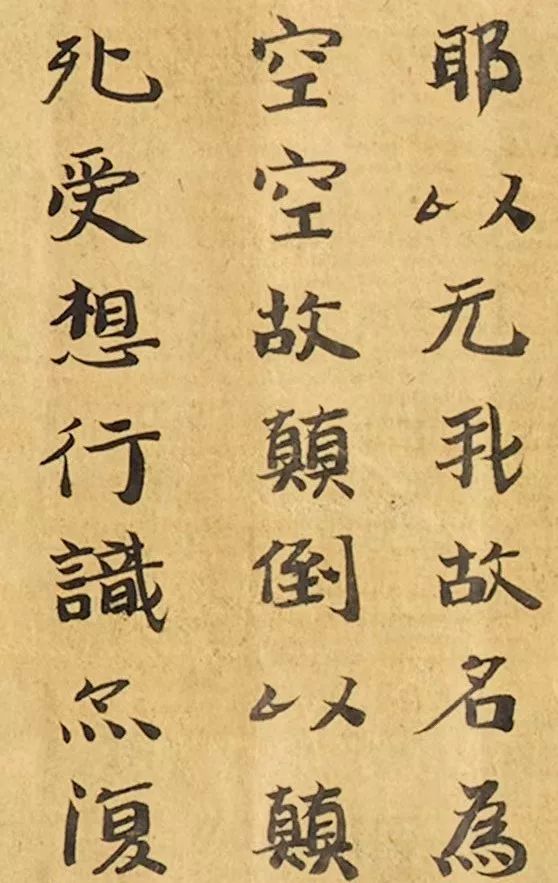 耶以无我故名為
空空故顛倒以顛
死受想行識亦復